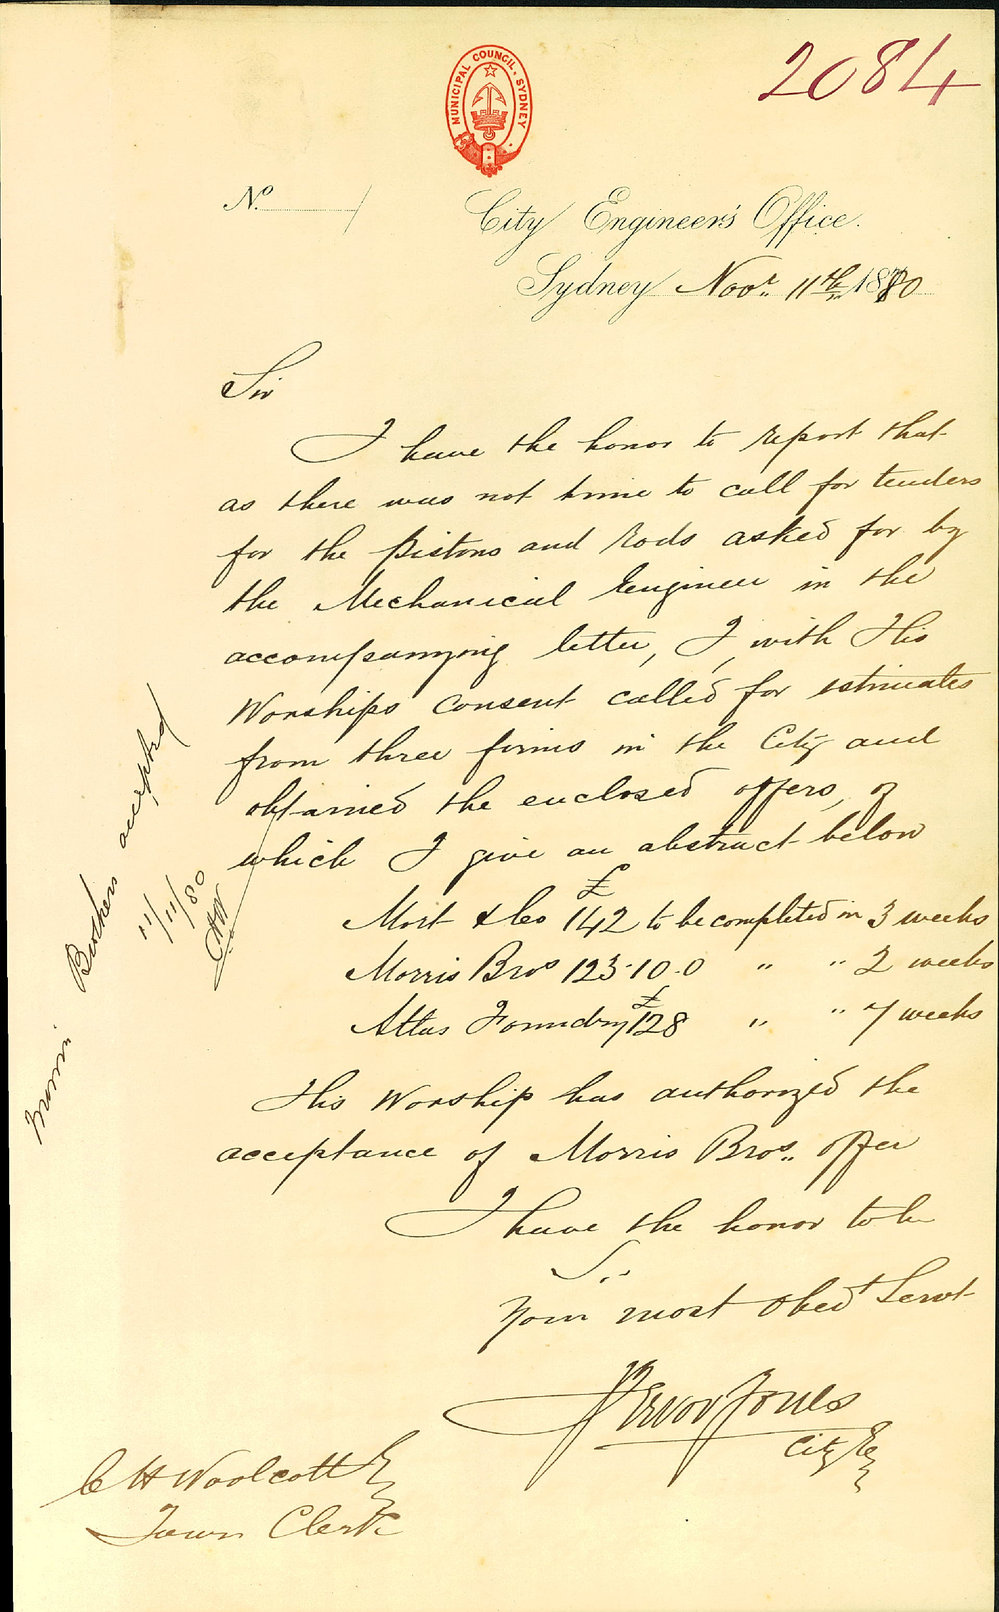 2084
MUNICIPAL COUNCIL. SYDNEY
No.
City Engineer's Office.
Sydney Novr. 11th 1880
Sir
I have the honor to report that
as there was not time to call for tenders
for the Pistons and Rods asked for by
the Mechanical Engineer in the
accompanying letter, I, with His
Worships consent called for estimates
from three firms in the City and
obtained the enclosed offers, of
which I give an abstract below
£
Mort & Co 142 to be completed in 3 weeks
Morris Bros 123.10.0 " " 2 weeks
£
Atlas Foundry 128 " " 7 weeks
His Worship has authorized the
acceptance of Morris Bros. offer
I have the honor to be
Sir
Your most obed Servt
Trevor Jones
City Er
C H Woolcott Er
Town Clerk
Morris Brothers accepted
11/11/80
CHW